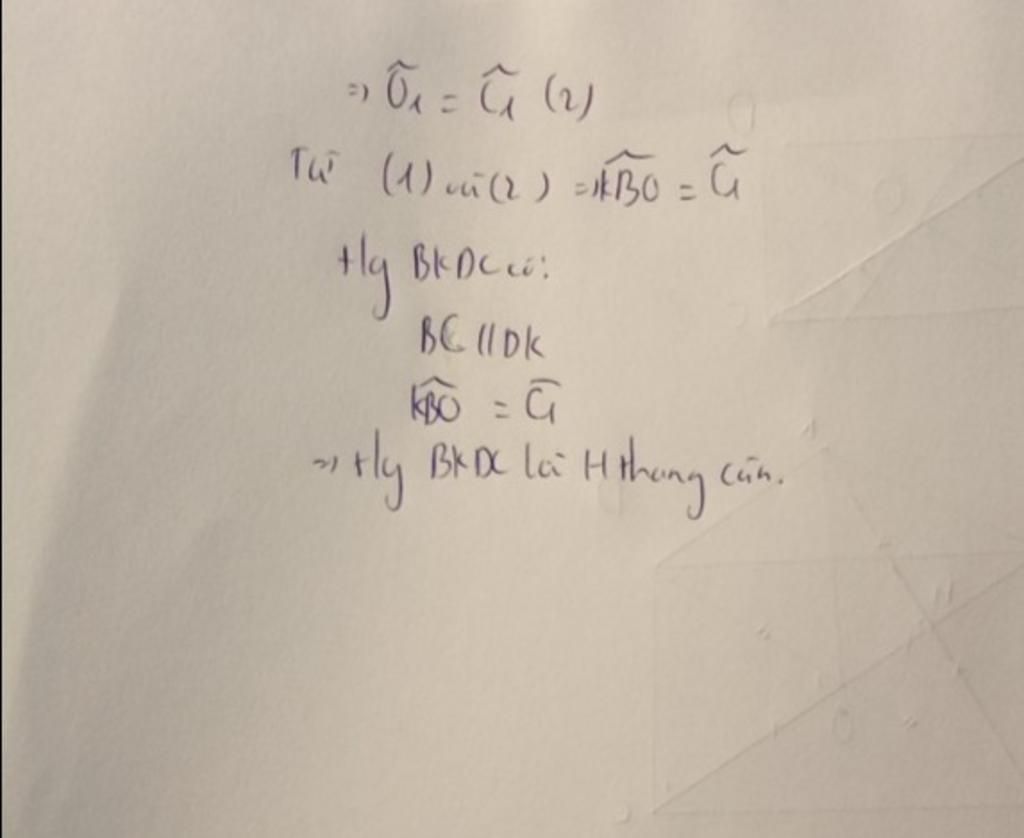 => Ô₁ = Ĉ₁ (2)
Từ (1) và (2) => K̂BO = Ĉ₁
Hg BKDC có:
BC // DK
K̂BO = C̄₁
=> Hg BKDC là H thang cân.